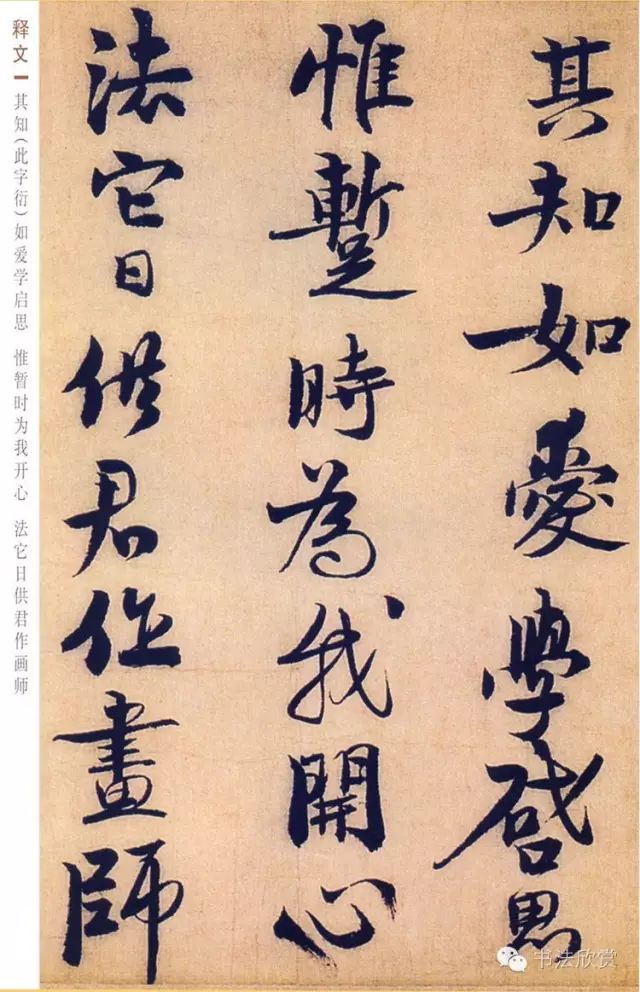 其知如爱學啓思
惟蹔時為我開心
法它日供君作畫師
释文
其知（此字衍）如爱学启思 惟暂时为我开心 法它日供君作画师
书法欣赏